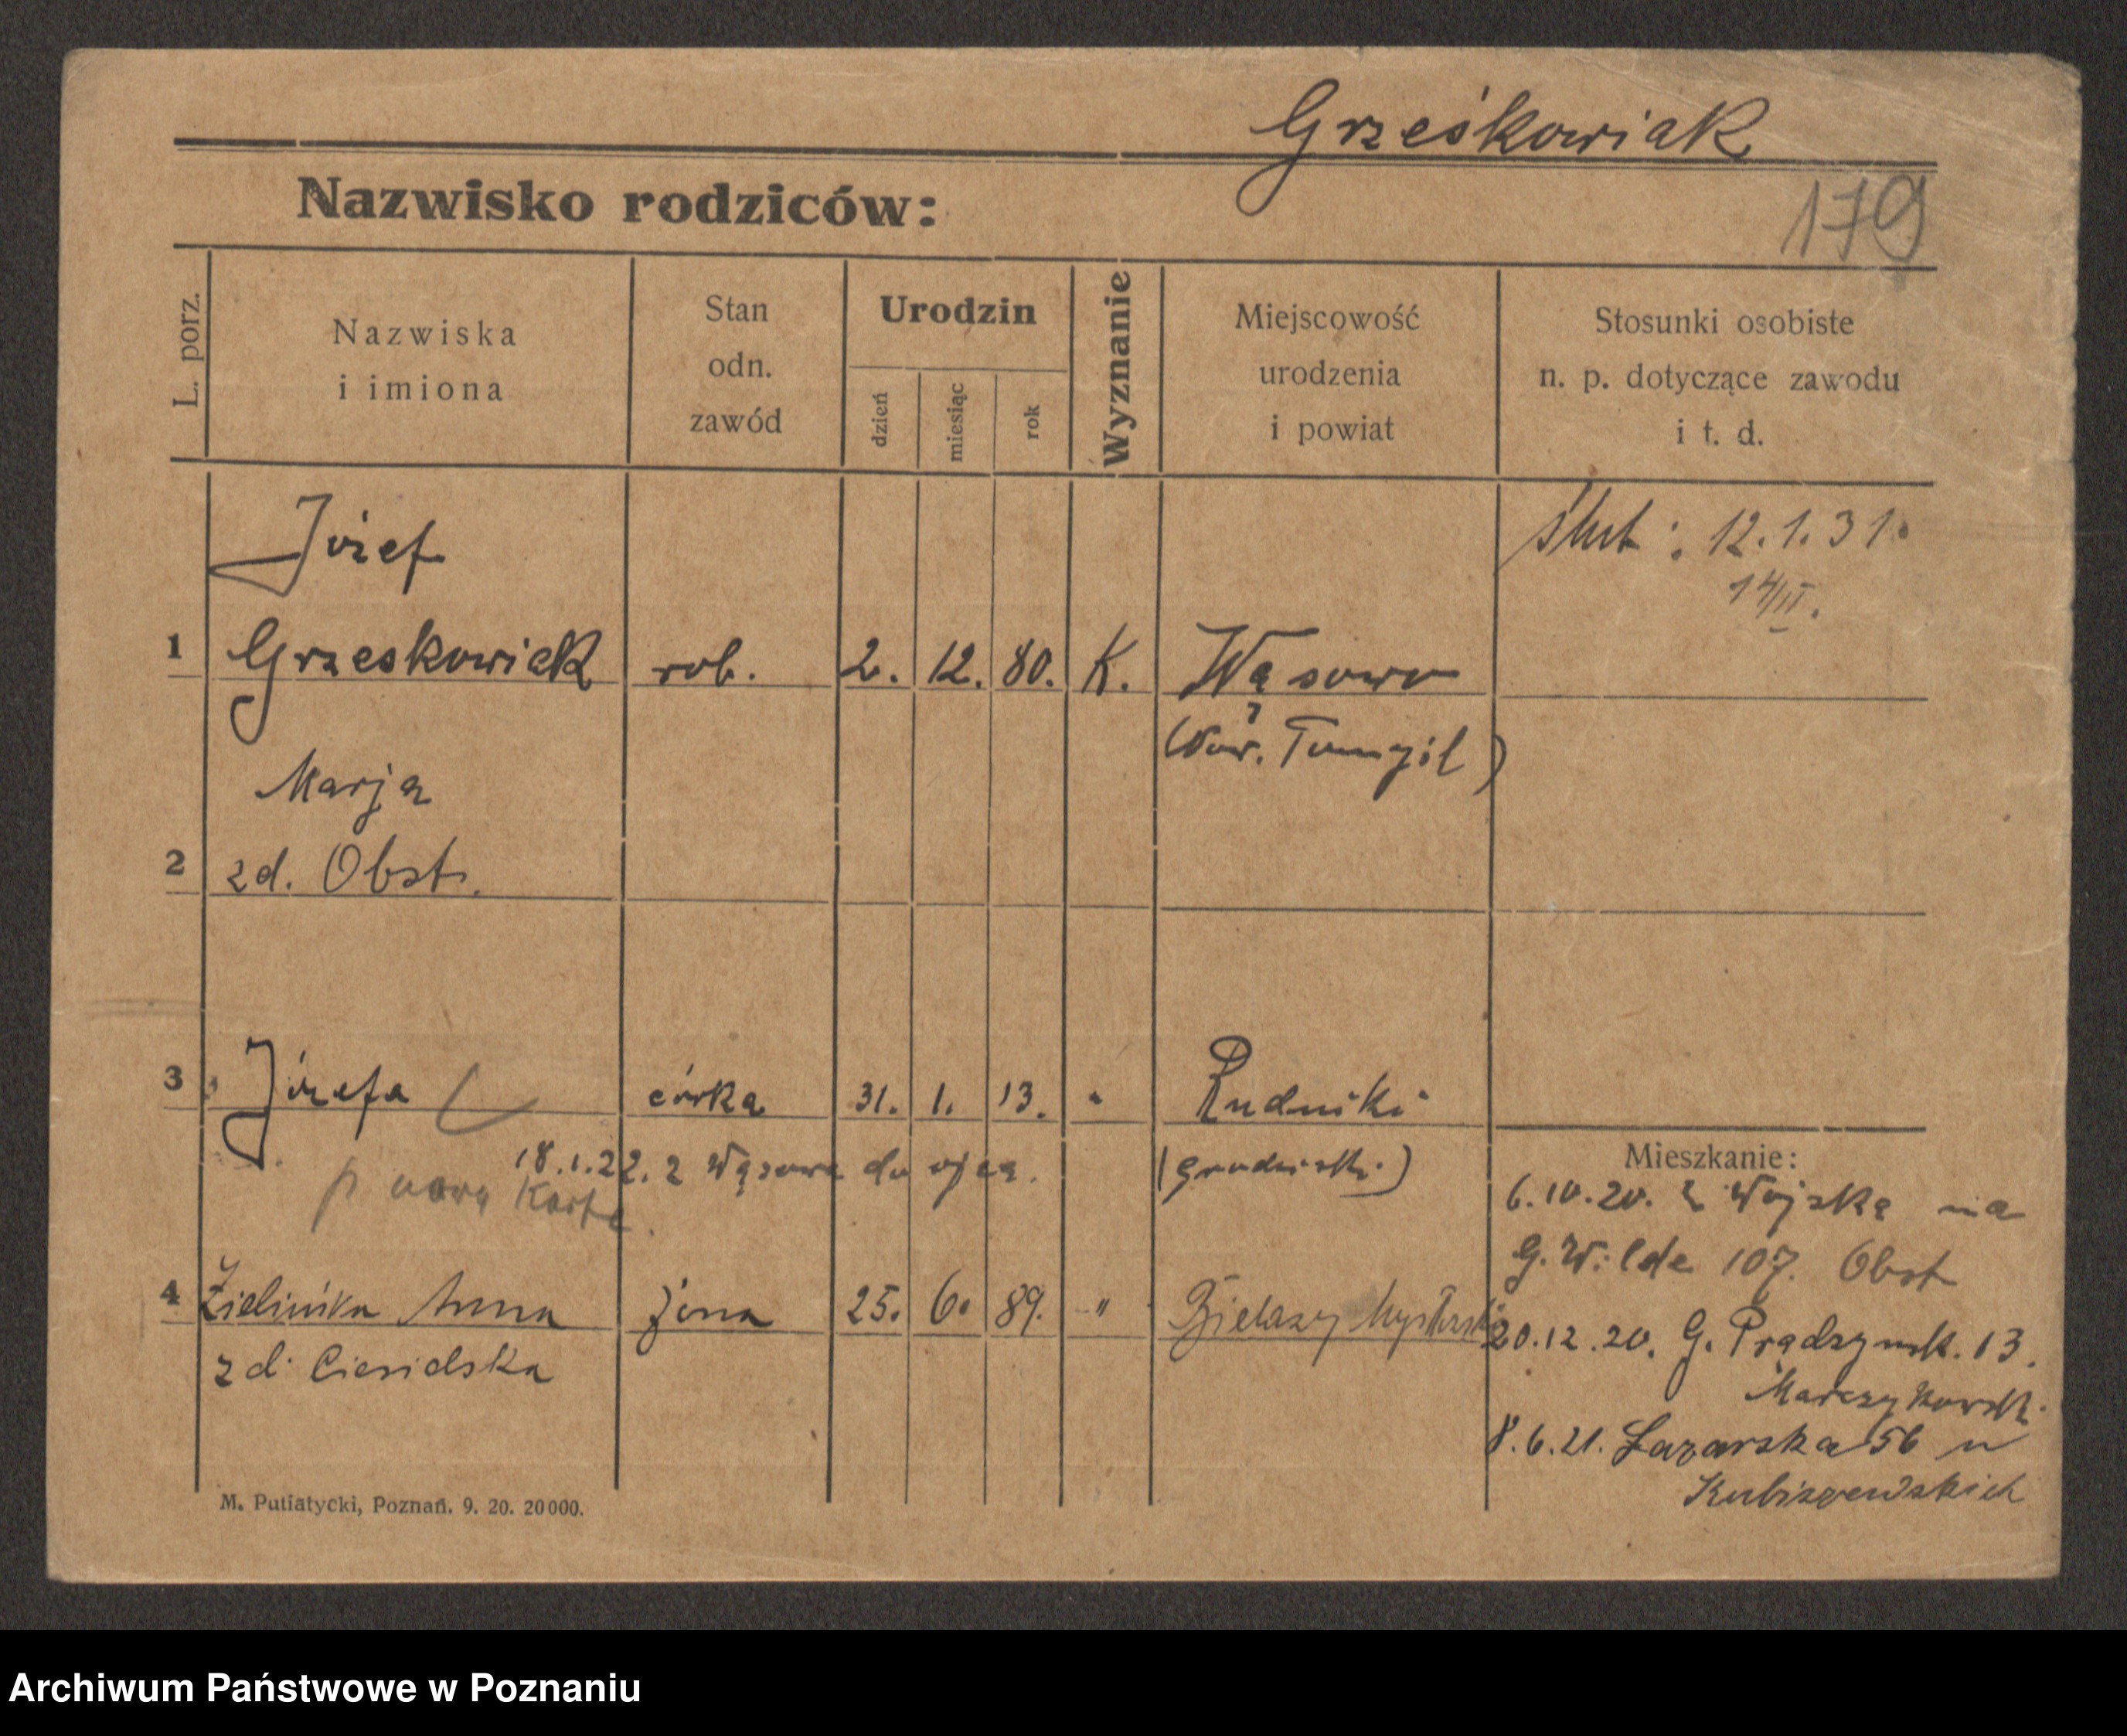 Grześkowiak
179
Nazwisko rodziców:
L. porz.
Nazwiska
i imiona
Stan
odn.
zawód
Urodzin
dzień
miesiąc
rok
Wyznanie
Miejscowość
urodzenia
i powiat
Stosunki osobiste
n. p. dotyczące zawodu
i t. d.
Józef
ślub: 12.1.31.
14/II.
1 Grześkowiak rob. 2. 12. 80. K. Wąsowo
(Now. Tomyśl)
Marja
2 zd. Obst.
3 Józefa córka 31. 1. 13. " Rudniki
(grodziski)
18.1.22. z Wąsowa do ojca.
p nową Kartę.
Mieszkanie:
6.10.20. z Wojska na
G. Wilde 107. Obst
4 Zielińska Anna żona 25. 6. 89. "
zd. Ciesielska
20.12.20. G. Prądzynsk. 13.
8.6.21. Łazarska 56 u
Kubiszewskich
M. Putiatycki, Poznań. 9. 20. 20000.
Archiwum Państwowe w Poznaniu